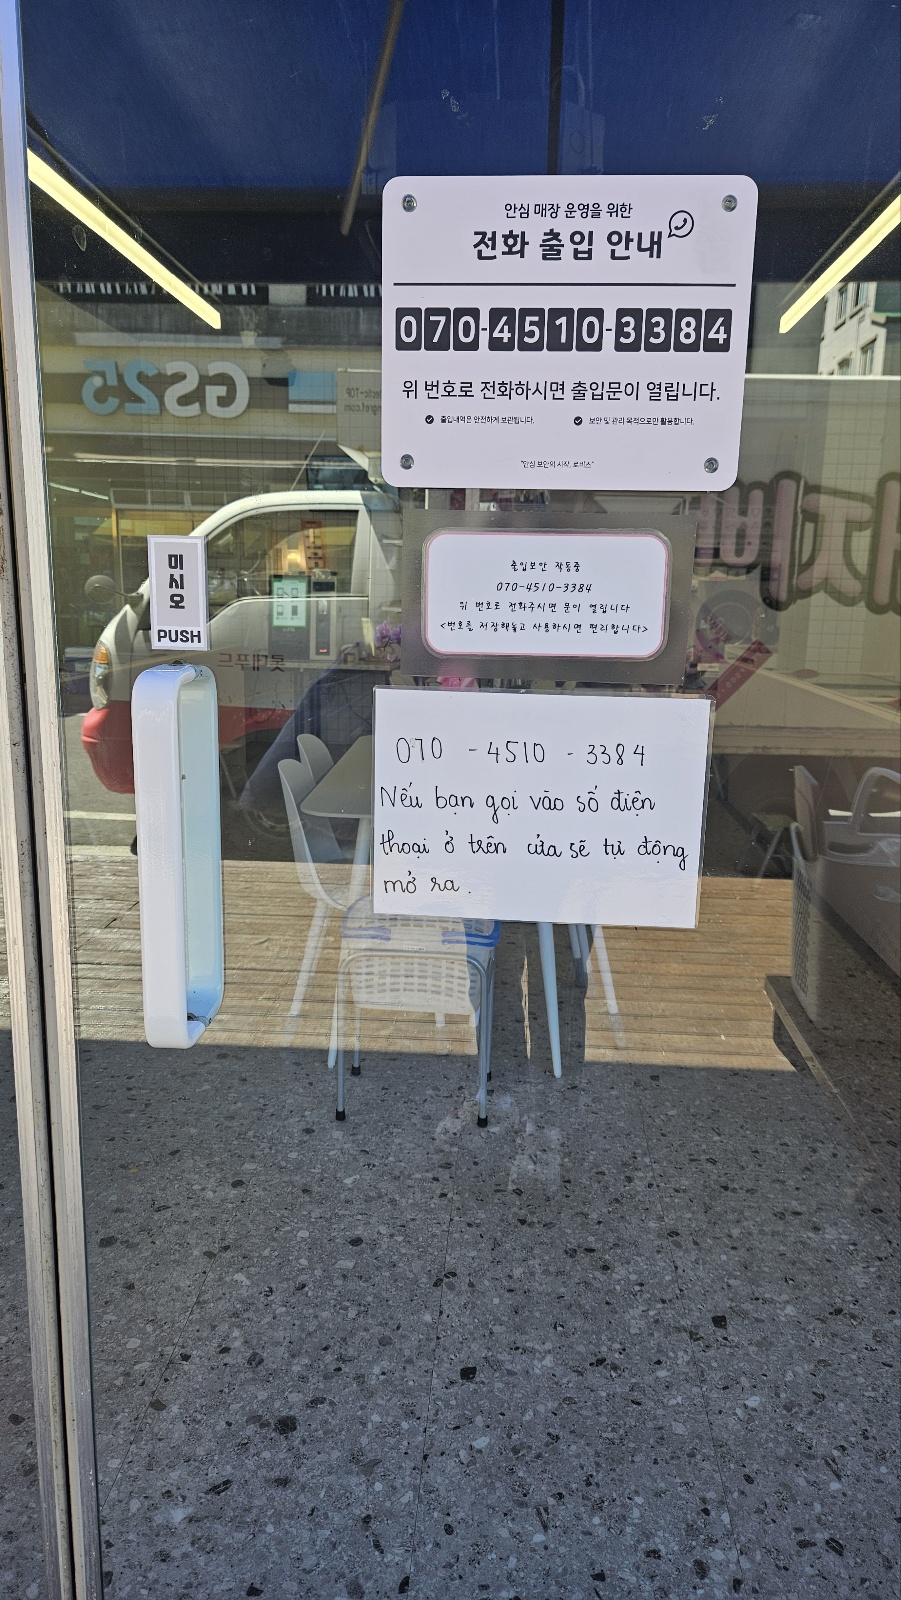 안심 매장 운영을 위한
전화 출입 안내
070-4510-3384
위 번호로 전화하시면 출입문이 열립니다.
출입내역은 안전하게 보관됩니다. 보안 및 관리 목적으로만 활용합니다.
"안심 보안의 시작, 로비스"
GS25
미시오
PUSH
출입보안 작동중
070-4510-3384
위 번호로 전화주시면 문이 열립니다
<번호를 저장해놓고 사용하시면 편리합니다>
롯데푸드
070 - 4510 - 3384
Nếu bạn gọi vào số điện
thoại ở trên cửa sẽ tự động
mở ra.